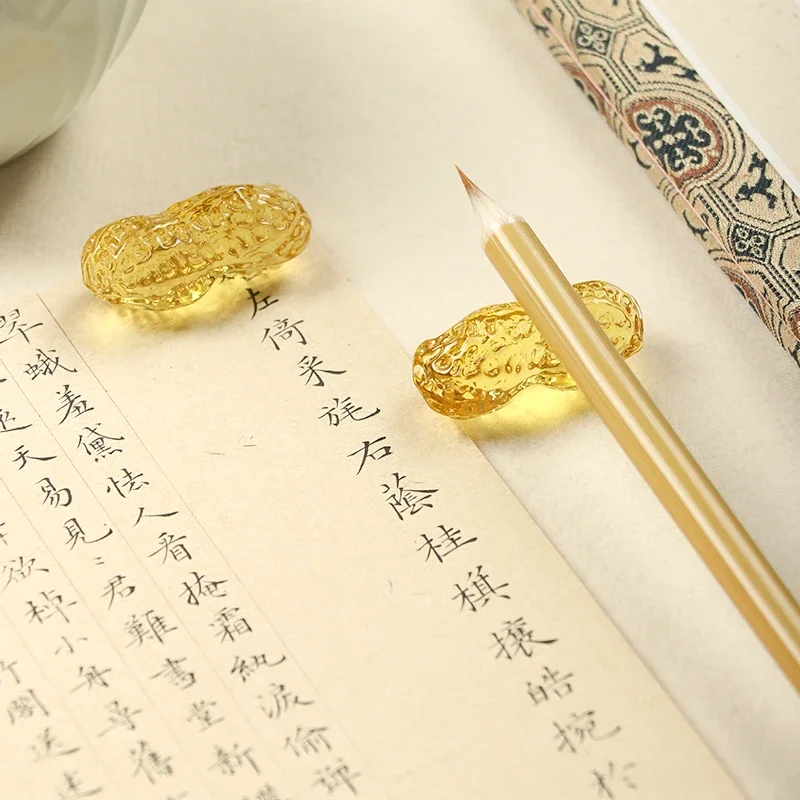 左倚采旄右蔭桂棋攘皓捥於
翠蛾羞黛怯人看掩霜紈淚偷彈
遠天易見〻君難畫堂新
欲棹小舟尋舊
送